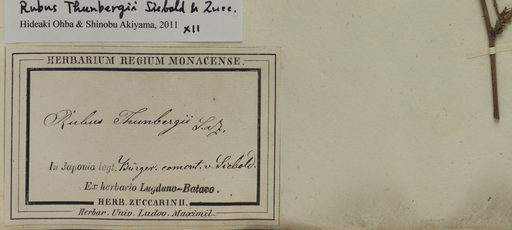 Rubus Thunbergii Siebold & Zucc.
Hideaki Ohba & Shinobu Akiyama, 2011 XII
HERBARIUM REGIUM MONACENSE.
Rubus Thunbergii S.&Z.
In Japonia legt. Bürger. comont. v. Siebold.
Ex herbario Lugduno-Batavo.
HERB. ZUCCARINII.
Herbar. Univ. Ludov. Maximil.